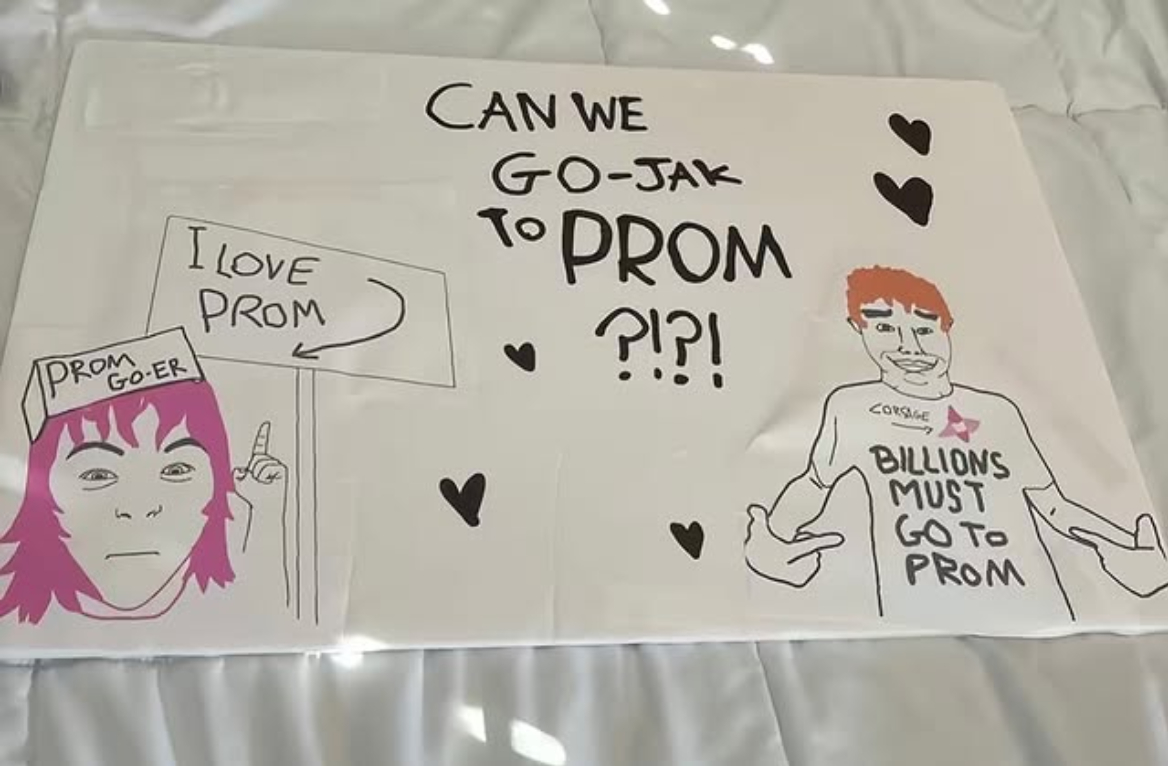 CAN WE
GO-JAK
TO PROM
?!?!
I LOVE
PROM
PROM
GO-ER
CORSAGE
BILLIONS
MUST
GO TO
PROM